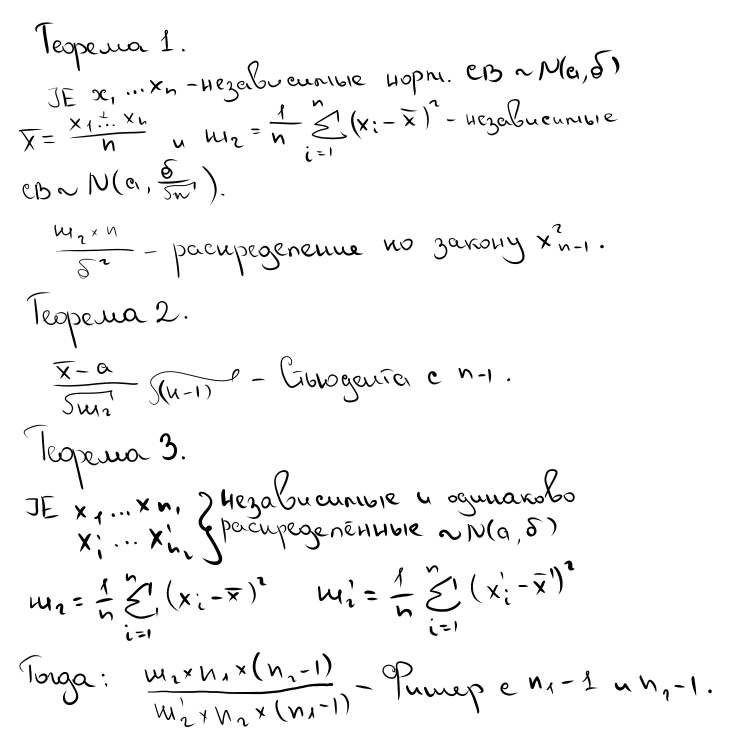 Теорема 1.
JE x₁ ... xₙ - независимые норм. СВ ~ N(a, б)
x̅ = (x₁ + ... xₙ)/n и m₂ = 1/n ∑ᵢ₌₁ⁿ (xᵢ - x̅)² - независимые
СВ ~ N(a, б/√n).
(m₂ × n)/б² - распределение по закону x²ₙ₋₁.
Теорема 2.
(x̅ - a)/√m₂ √(n-1) - Стьюдента с n-1.
Теорема 3.
JE x₁ ... xₙ₁ } независимые и одинаково
x₁' ... x'ₙ₂ } распределённые ~ N(a, б)
m₂ = 1/n ∑ᵢ₌₁ⁿ (xᵢ - x̅)² m₂' = 1/n ∑ᵢ₌₁ⁿ (xᵢ' - x̅')²
Тогда: (m₂ × n₁ × (n₂-1))/(m₂' × n₂ × (n₁-1)) - Фишер с n₁-1 и n₂-1.